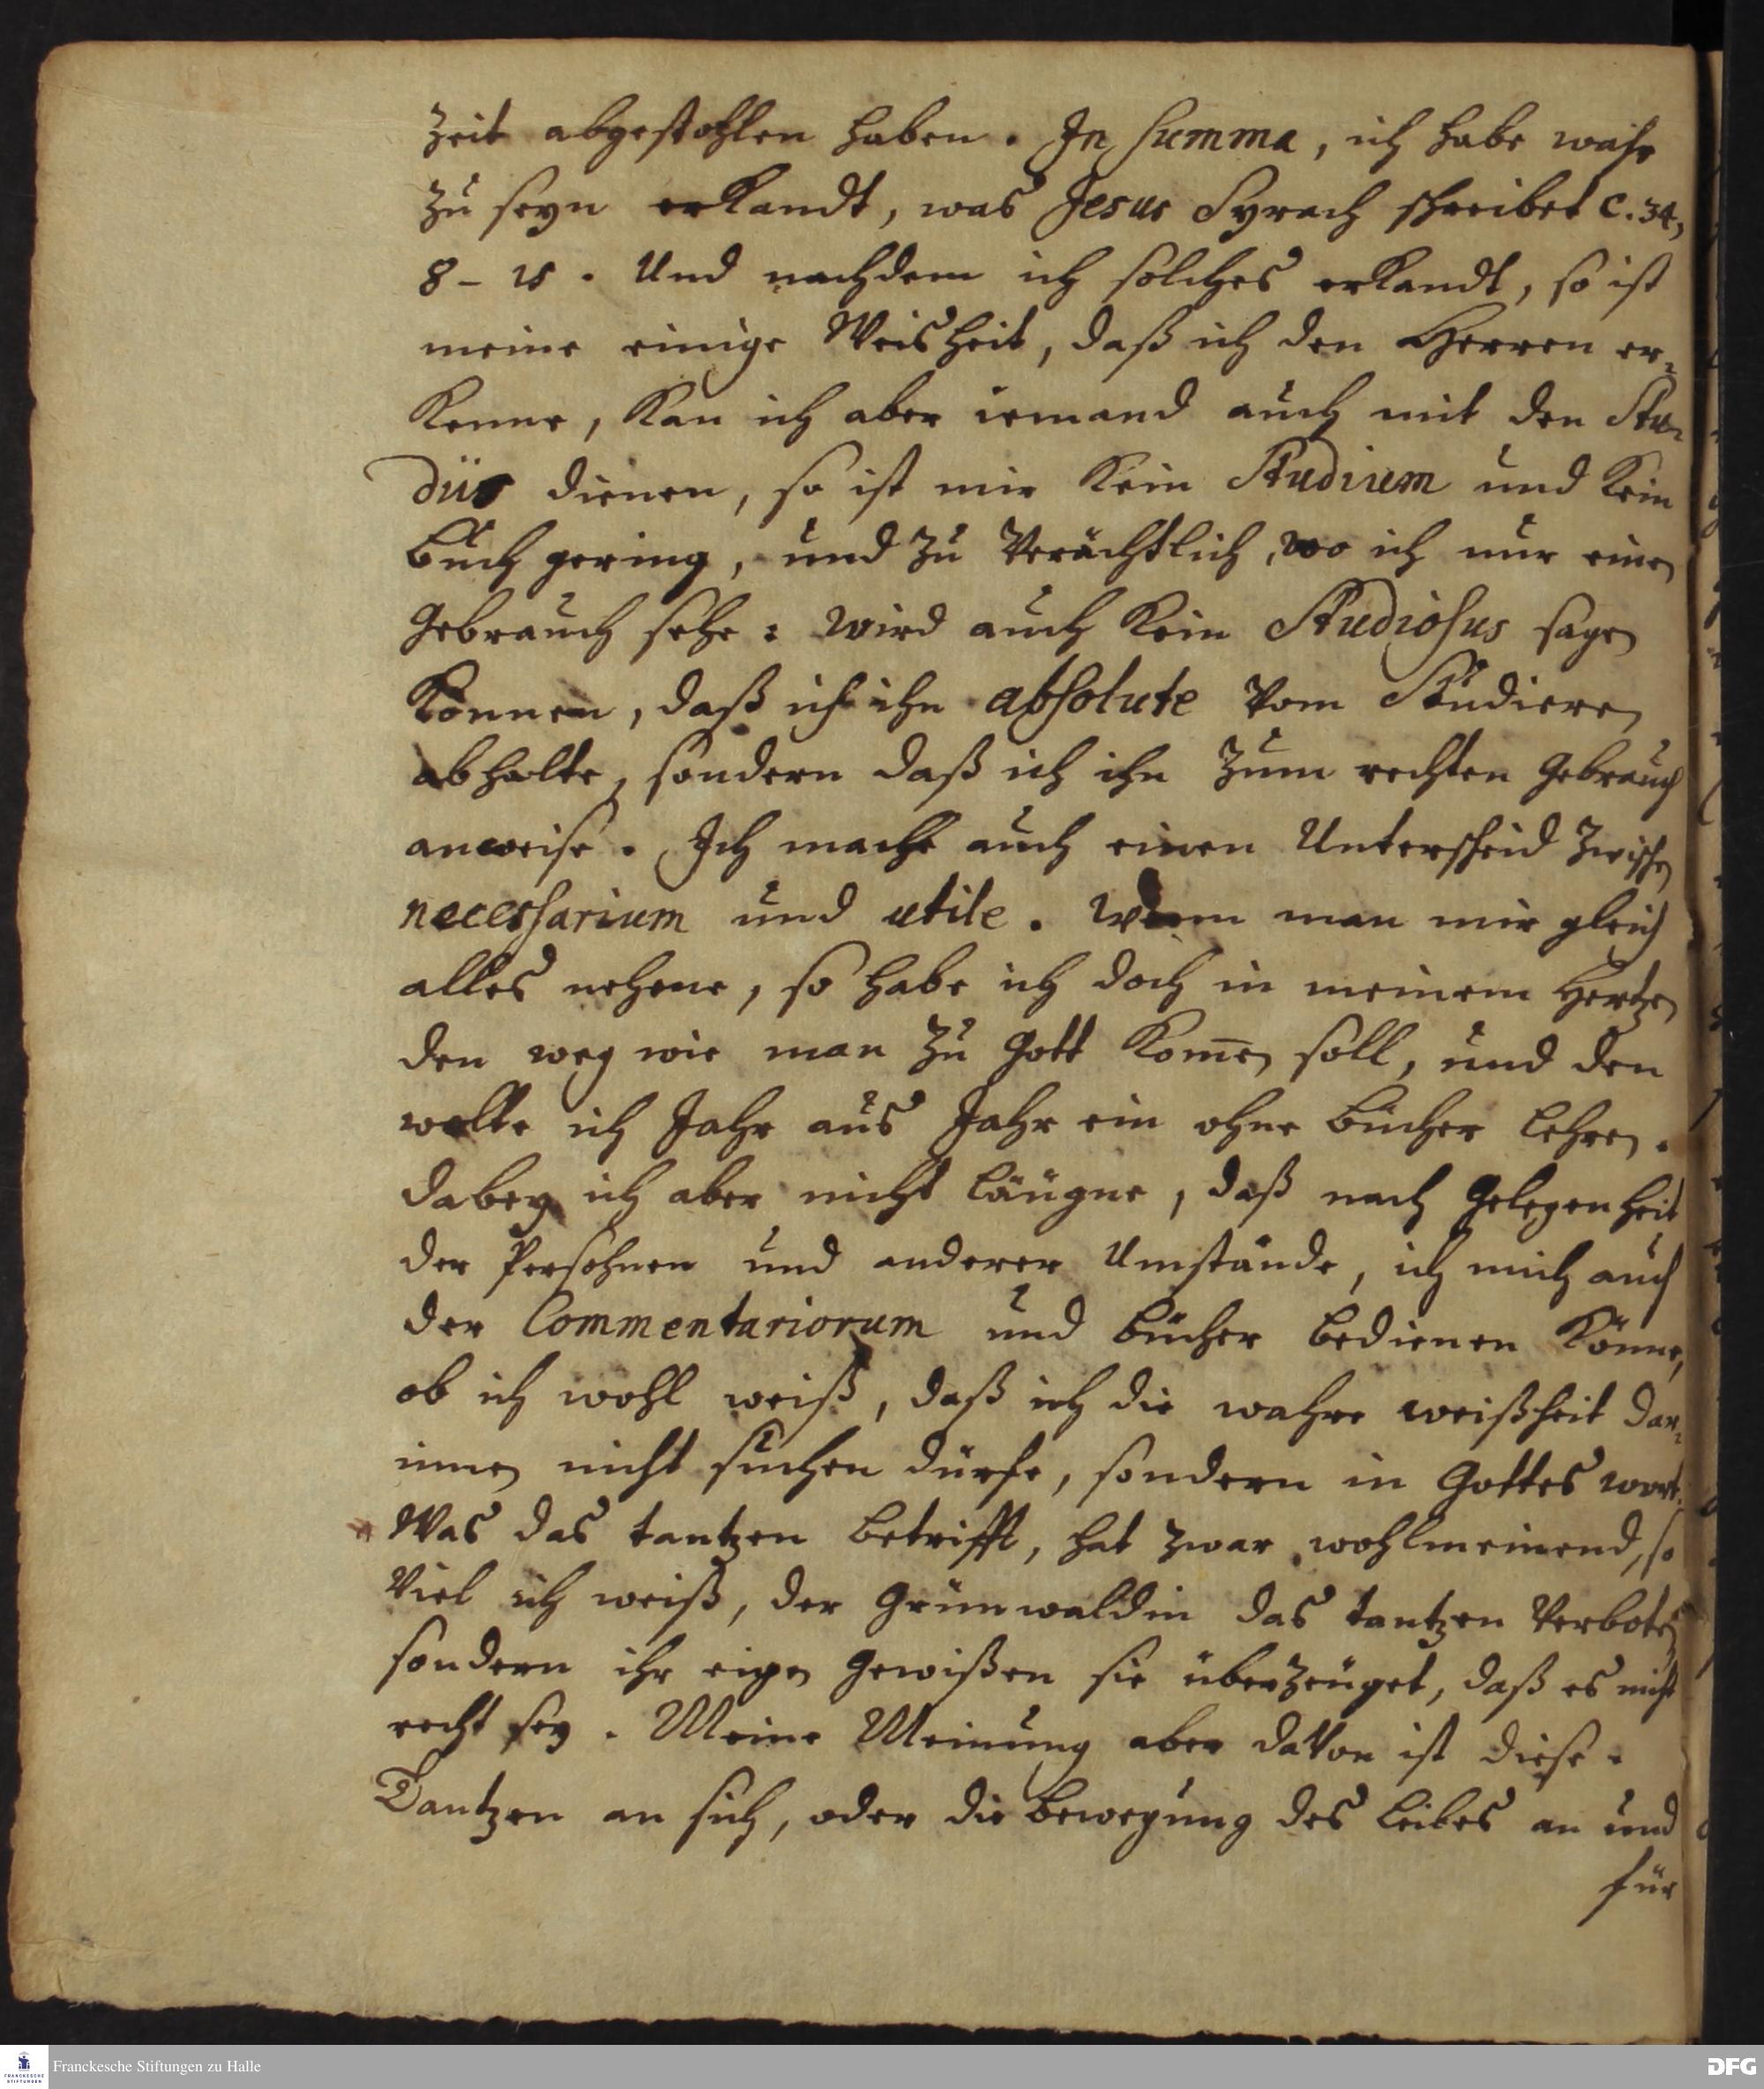 Zeit abgestohlen haben. In summa, ich habe wahr
zu seyn erkandt, was Jesus Syrach schreibet C. 34,
8 – 15. Und nachdem ich solches erkandt, so ist
meine einige Weisheit, daß ich den Herren er-
kenne, kan ich aber iemand auch mit den Stu-
diis dienen, so ist mir kein Studium und kein
buch gering, und zu verächtlich, wo ich nur einen
gebrauch sehe: wird auch kein Studiosus sagen
können, daß ich ihn absolute vom Studieren
abhalte, sondern daß ich ihn zum rechten gebrauch
anweise. Ich mache auch einen Unterscheid zwischen
necessarium und utile. Wenn man mir gleich
alles nehme, so habe ich doch in meinem Hertzen
den weg wie man zu Gott kom̅en soll, und den
wolte ich Jahr aus Jahr ein ohne bücher lehren.
dabey ich aber nicht läugne, daß nach gelegenheit
der Persohnen und anderer Umstände, ich mich auch
der Commentariorum und bücher bedienen könne,
ob ich wohl weiß, daß ich die wahre weißheit dar-
innen nicht suchen dürfe, sondern in Gottes wort.
Was das tantzen betrifft, hat zwar wohlmeinend, so
viel ich weiß, der Grünwaldin das tantzen verboten,
sondern ihr eigen gewißen sie überzeuget, daß es nicht
recht sey. Meine Meinung aber davon ist diese.
Tantzen an sich, oder die bewegung des leibes an und
für
Franckesche Stiftungen zu Halle
FRANCKESCHE
STIFTUNGEN
DFG